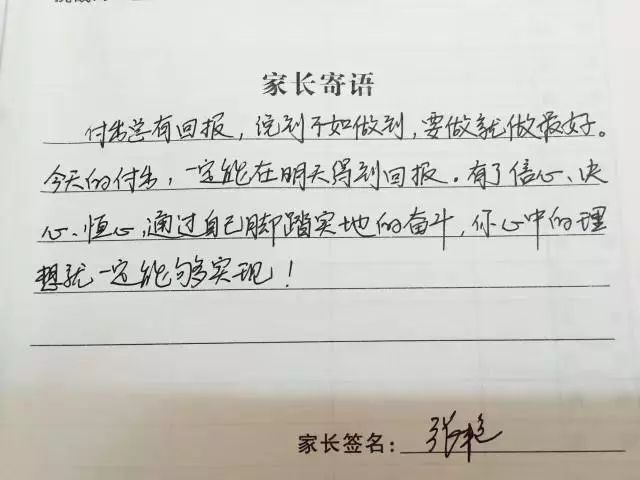 家长寄语
付出总有回报，说到不如做到，要做就做最好。
今天的付出，一定能在明天得到回报。有了信心、决
心、恒心，通过自己脚踏实地的奋斗，你心中的理
想就一定能够实现！
家长签名：张艳